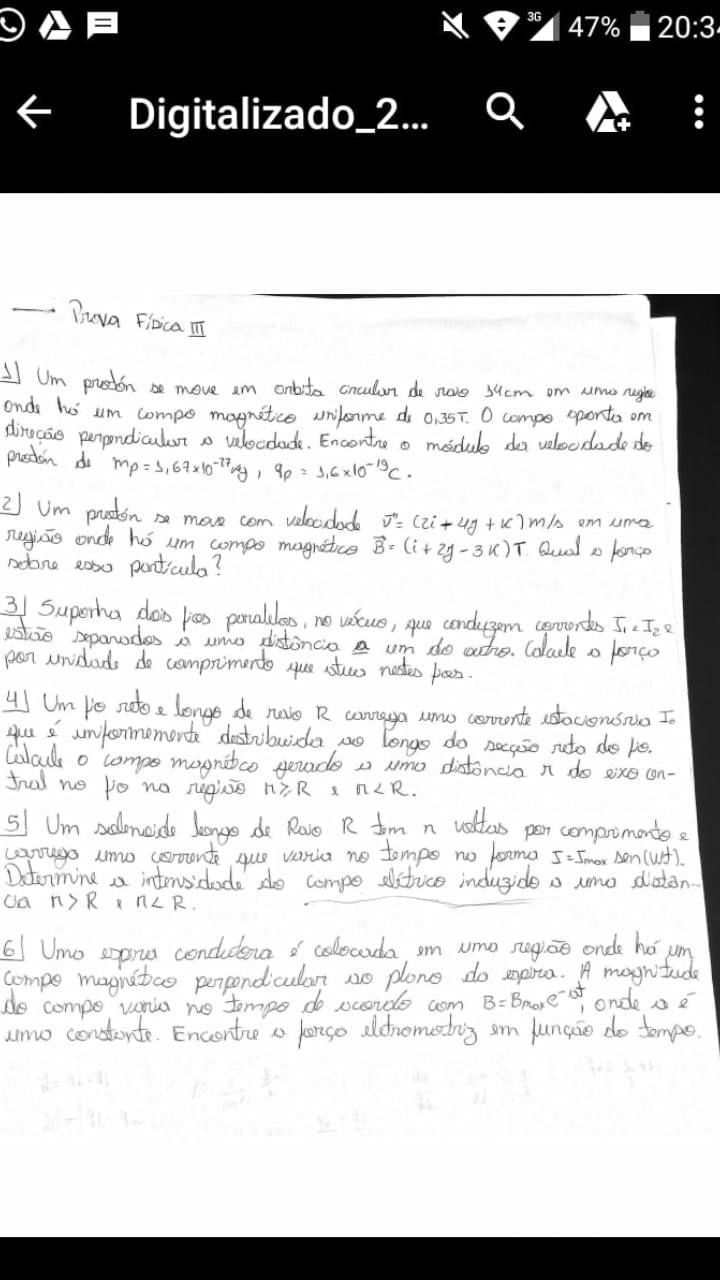 3G 47% 20:34
Digitalizado_2...
Prova Física III
1) Um protón se move em orbita circular de raio 14cm em uma região
onde há um campo magnético uniforme de 0,35T. O campo aponta em
direção perpendicular a velocidade. Encontre o módulo da velocidade do
protón de mp = 1,67x10⁻²⁷Kg, qp = 1,6x10⁻¹⁹C.
2) Um protón se move com velocidade v⃗ = (2i + 4y + K) m/s em uma
região onde há um campo magnético B⃗ = (i + 2y - 3K)T. Qual a força
sobre essa partícula?
3) Suponha dois fios paralelos, no vácuo, que conduzem correntes I₁ e I₂ e
estão separados a uma distância a um do outro. Calcule a força
por unidade de comprimento que atua nestes fios.
4) Um fio reto e longo de raio R carrega uma corrente estacionária I₀
que é uniformemente destribuida ao longo da secção reta do fio.
Calcule o campo magnético gerado a uma distância r do eixo cen-
tral no fio na região r ≥ R e r < R.
5) Um solenoide longo de Raio R tem n voltas por comprimento e
carrega uma corrente que varia no tempo na forma I = Imax sen(wt).
Determine a intensidade do campo elétrico induzido a uma distân-
cia r > R e r < R.
6) Uma espira condutora é colocada em uma região onde há um
campo magnético perpendicular ao plano da espira. A magnitude
do campo varia no tempo de acordo com B = Bmax e⁻ᵃᵗ, onde a é
uma constante. Encontre a força eletromotriz em função do tempo.